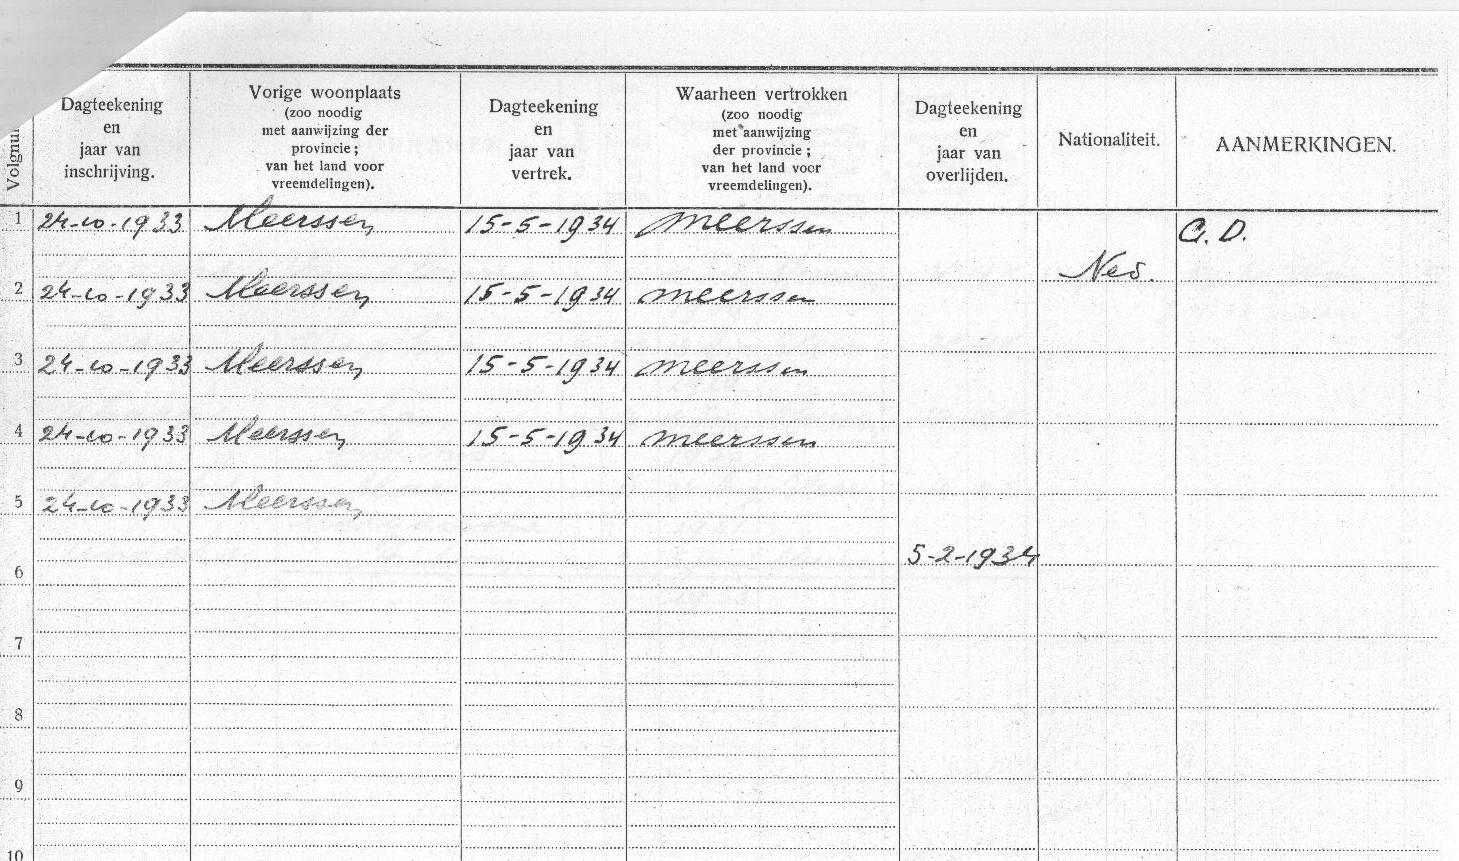 Volgnu
Dagteekening
en
jaar van
inschrijving.
Vorige woonplaats
(zoo noodig
met aanwijzing der
provincie;
van het land voor
vreemdelingen).
Dagteekening
en
jaar van
vertrek.
Waarheen vertrokken
(zoo noodig
met aanwijzing
der provincie;
van het land voor
vreemdelingen).
Dagteekening
en
jaar van
overlijden.
Nationaliteit.
AANMERKINGEN.
1 24-10-1933 Meerssen 15-5-1934 Meerssen G.D.
Ned.
2 24-10-1933 Meerssen 15-5-1934 Meerssen
3 24-10-1933 Meerssen 15-5-1934 Meerssen
4 24-10-1933 Meerssen 15-5-1934 Meerssen
5 24-10-1933 Meerssen
5-2-1934
6
7
8
9
10